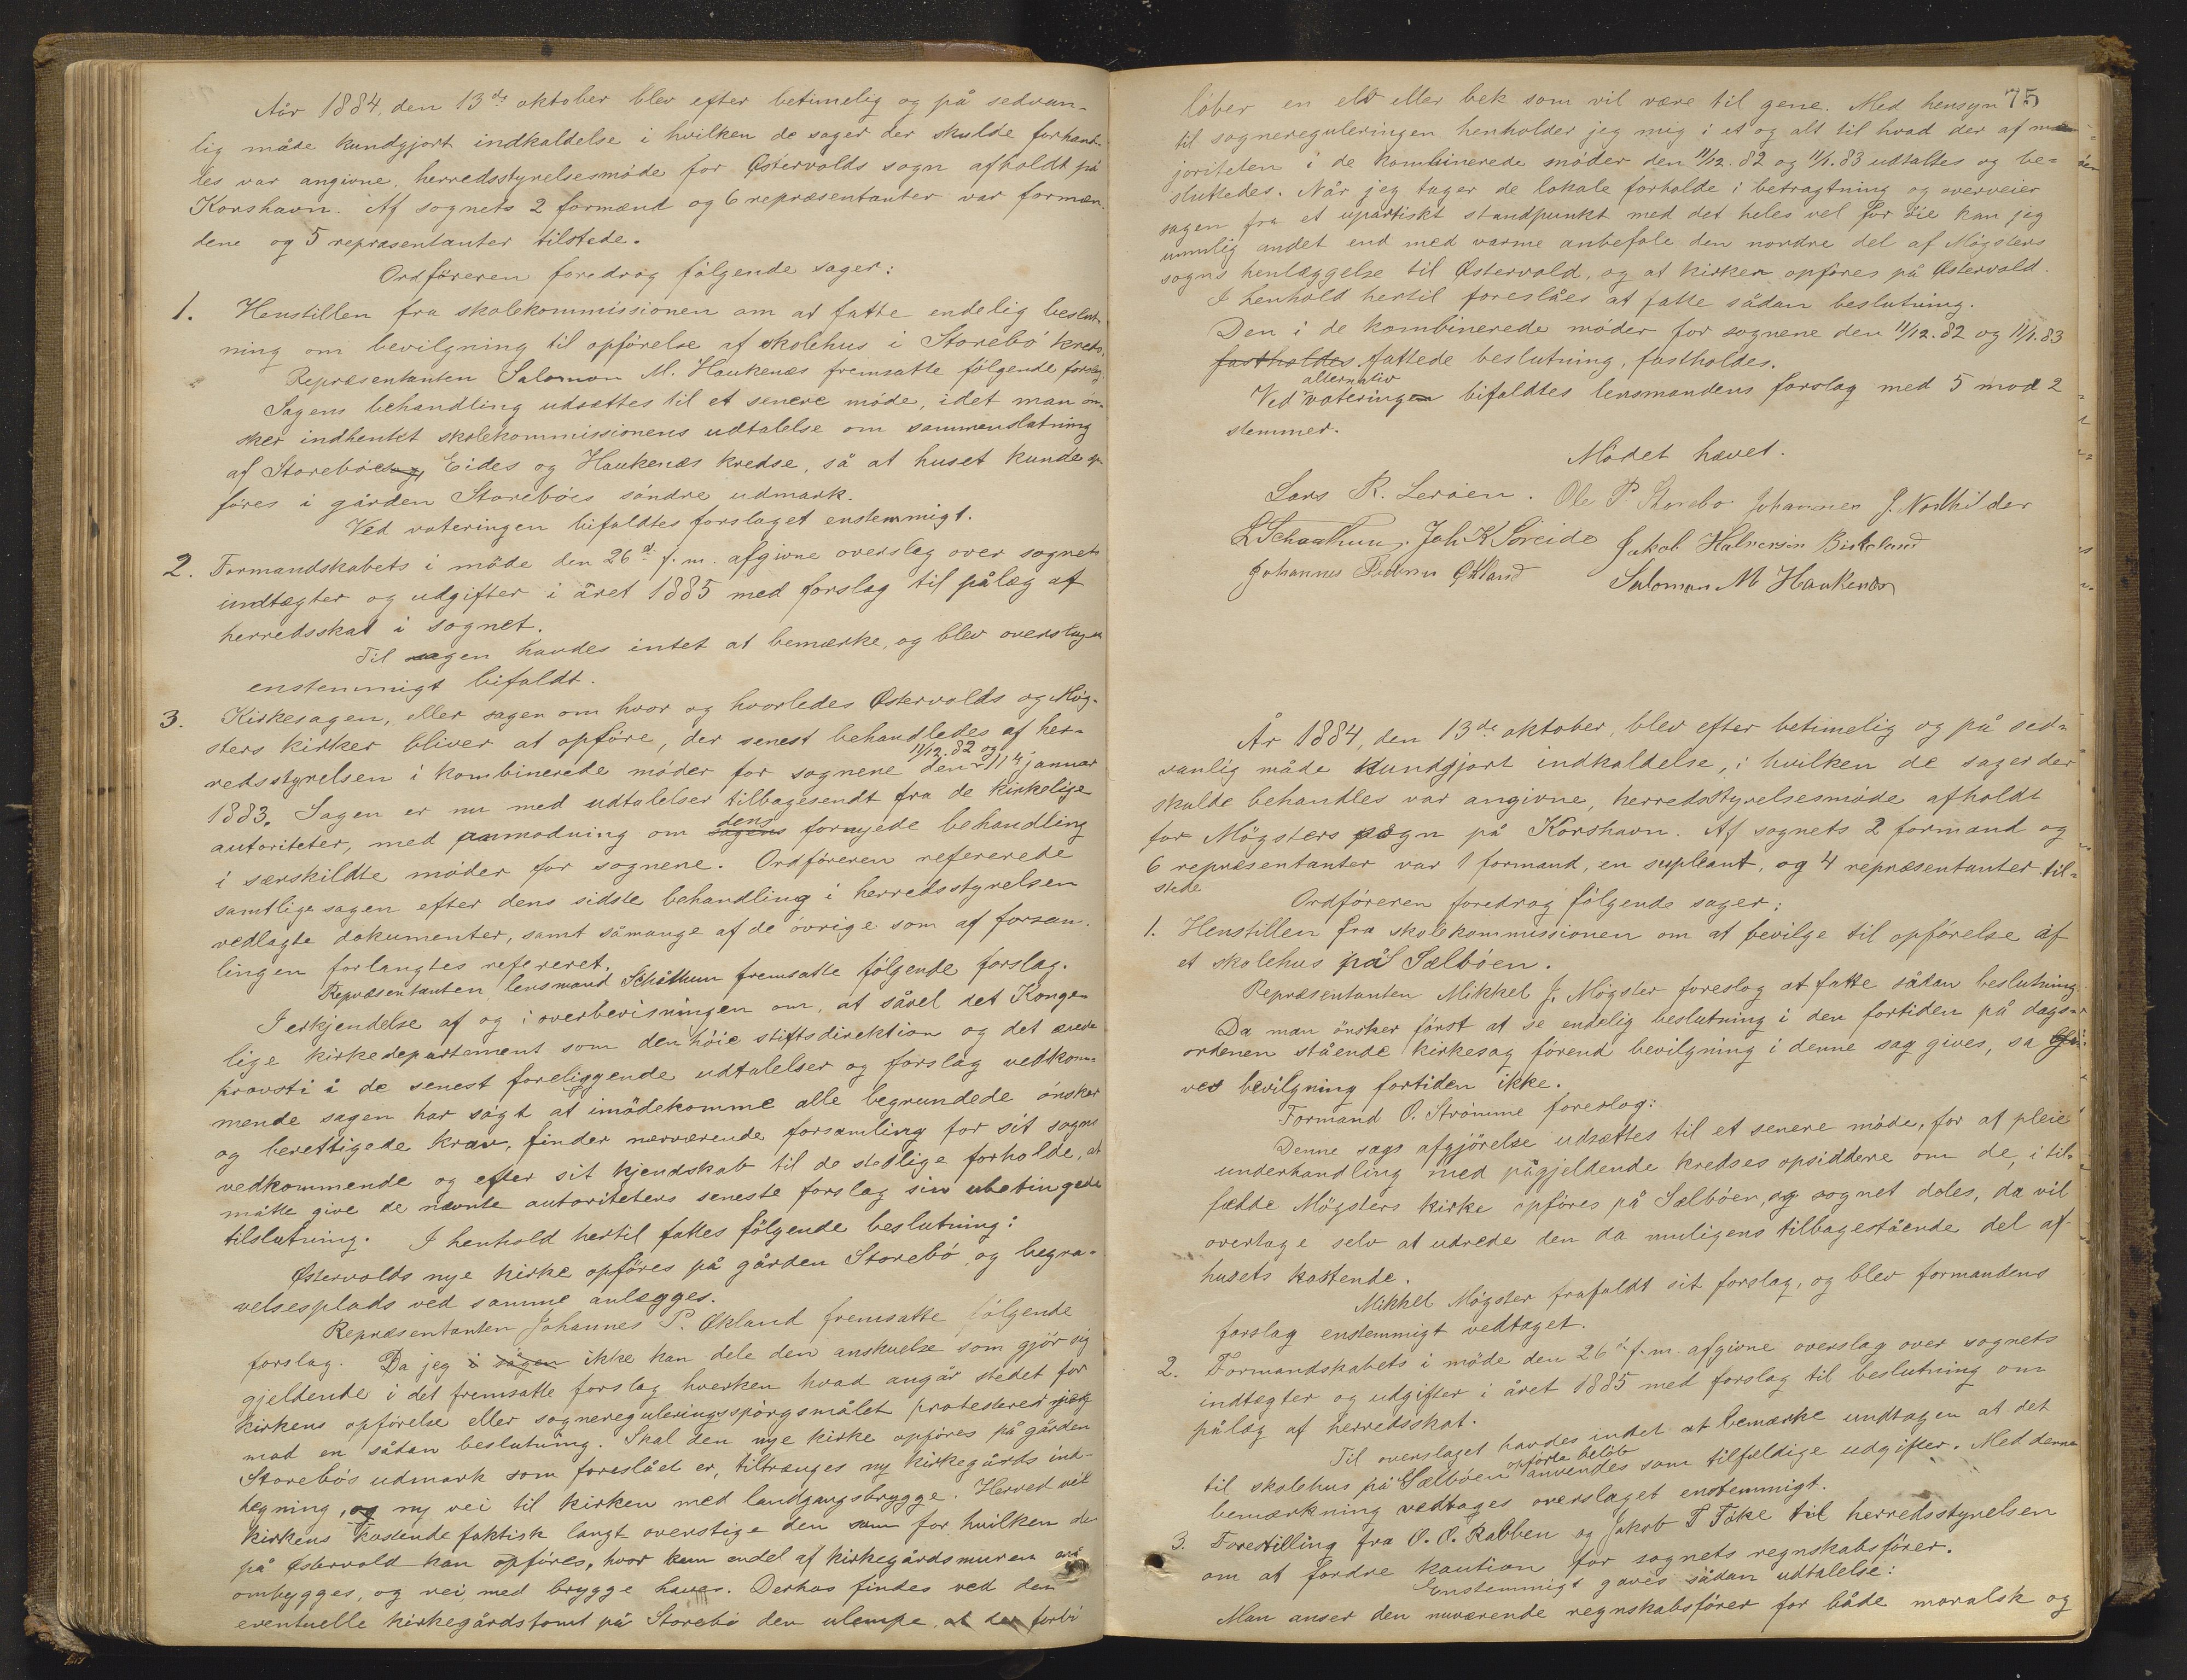 År 1884, den 13de oktober blev efter betimelig og på sedvan-
lig måde kundgjort indkaldelse i hvilken de sager der skulde forhand-
les var angivne, herredsstyrelsesmöde for Østervolds sogn afholdt på
Korshavn. Af sognets 2 formænd og 6 repræsentanter var formæn-
dene og 5 repræsentanter tilstede.
Ordföreren foredrog fölgende sager:
1. Henstillen fra skolekommissionen om at fatte endelig beslut-
ning om bevilgning til opförelse af skolehus i Storebö kreds.
Repræsentanten Salomon M. Haukenæs fremsatte fölgende forslag
Sagens behandling udsættes til et senere möde, idet man ön-
sker indhentet skolekommissionens udtalelse om sammenslutning
af Storeböes og Eides og Haukenæs kredse, så at huset kunde op-
föres i gården Storeböes söndre udmark.
Ved voteringen bifaldtes forslaget enstemmigt.
2. Formandskabets i möde den 26de f. m. afgivne overslag over sognets
indtægter og udgifter i året 1885 med forslag til pålæg af
herredsskat i sognet.
Til sagen havdes intet at bemærke, og blev overslaget
enstemmigt bifaldt.
3. Kirkesagen, eller sagen om hvor og hvorledes Østervolds og Mög-
sters kirker bliver at opföre, der senest behandledes af her-
redsstyrelsen i kombinerede möder for sognene den 11/12. 82 og 11te januar
1883. Sagen er nu med udtalelser tilbagesendt fra de kirkelige
autoriteter, med anmodning om sagens dens fornyede behandling
i særskildte möder for sognene. Ordföreren refererede
samtlige sagen efter dens sidste behandling i herredsstyrelsen
vedlagte dokumenter, samt såmange af de övrige som af forsam-
lingen forlangtes refereret.
Repræsentanten lensmand Schåthun fremsatte fölgende forslag.
I erkjendelse af og i overbevisningen om, at såvel det Konge-
lige kirkedepartement som den höie stiftsdirektion og det ærede
provsti i de senest foreliggende udtalelser og forslag vedkom-
mende sagen har sögt at imödekomme alle begrundede önsker
og berettigede krav, finder nærværende forsamling for sit sogns
vedkommende og efter sit kjendskab til de stedlige forholde, at
måtte give de nævnte autoriteters seneste forslag sin ubetingede
tilslutning. I henhold hertil fattes fölgende beslutning:
Østervolds nye kirke opföres på gården Storebö og begra-
velsesplads ved samme anlægges.
Repræsentanten Johannes P. Økland fremsatte fölgende
forslag. Da jeg i sagen ikke kan dele den anskuelse som gjör sig
gjeldende i det fremsatte forslag hverken hvad angår stedet for
kirkens opförelse eller sognereguleringsspörgsmålet protesterer jeg
mod en sådan beslutning. Skal den nye kirke opföres på gården
Storebös udmark som foreslået er, tiltrænges ny kirkegårds ind-
hegning, og ny vei til kirken med landgangsbrygge. Herved vil
kirkens kostende faktisk langt overstige den sum for hvilken den
på Østervold kan opföres, hvor kun endel af kirkegårdsmuren må
ombygges, og vei med brygge haves. Derhos findes ved den
eventuelle kirkegårdstomt på Storebö den ulempe, at der forbi
75
löber en elv eller bek som vil være til gene. Med hensyn
til sognereguleringen henholder jeg mig i et og alt til hvad der af ma-
joriteten i de kombinerede möder den 11/12. 82 og 11/1. 83 udtaltes og be-
sluttedes. Når jeg tager de lokale forholde i betragtning og overveier
sagen fra et upartiskt standpunkt med det heles vel for öie kan jeg
umulig andet end med varme anbefale den nordre del af Mögsters
sogns henlæggelse til Østervold, og at kirken opföres på Østervold.
I henhold hertil foreslåes at fatte sådan beslutning.
Den i de kombinerede möder for sognene den 11/12. 82 og 11/1. 83
fastholdes fattede beslutning, fastholdes.
Ved alternativ voteringen bifaldtes lensmandens forslag med 5 mod 2
stemmer.
Mödet hævet.
Lars R. Leröen. Ole P. Storebo Johannes J. Nordhilder
L Schaathun. Joh. K Söreide Jakob Halversen Birkeland
Johannes Pedersen Økland Salomon M Haukenæs
År 1884, den 13de oktober, blev efter betimelig og på sed-
vanlig måde kundgjort indkaldelse, i hvilken de sager der
skulde behandles var angivne, herredsstyrelsesmöde afholdt
for Mögsters sogn på Korshavn. Af sognets 2 formænd og
6 repræsentanter var 1 formand, en supleant, og 4 repræsentanter til-
stede
Ordföreren foredrog fölgende sager:
1. Henstillen fra skolekommissionen om at bevilge til opförelse af
et skolehus på Sælböen.
Repræsentanten Mikkel J. Mögster foreslog at fatte sådan beslutning.
Da man önsker först at se endelig beslutning i den fortiden på dags-
ordenen stående kirkesag förend bevilgning i denne sag gives, så gi-
ves bevilgning fortiden ikke.
Formand O. Strömme foreslog:
Denne sags afgjörelse udsættes til et senere möde, for at pleie
underhandling med pågjeldende kredses opsiddere om de, i til-
fælde Mögsters kirke opföres på Sælböen, og sognet deles, da vil
overtage selv at udrede den da muligens tilbagestående del af
husets kostende.
Mikkel Mögster frafaldt sit forslag, og blev formandens
forslag enstemmigt vedtaget.
2. Formandskabets i möde den 26de f. m. afgivne overslag over sognets
indtægter og udgifter i året 1885 med forslag til beslutning om
pålæg af herredsskat.
Til overslaget havdes intet at bemærke undtagen at det
til skolehus på Sælböen opförte belöb anvendes som tilfældige udgifter. Med denne
bemærkning vedtages overslaget enstemmigt.
3. Forestilling fra O. O. Rabben og Jakob T Toke til herredsstyrelsen
om at fordre kaution for sognets regnskabsförer.
Enstemmigt gaves sådan udtalelse:
Man anser den nuværende regnskabsförer for både moralsk og